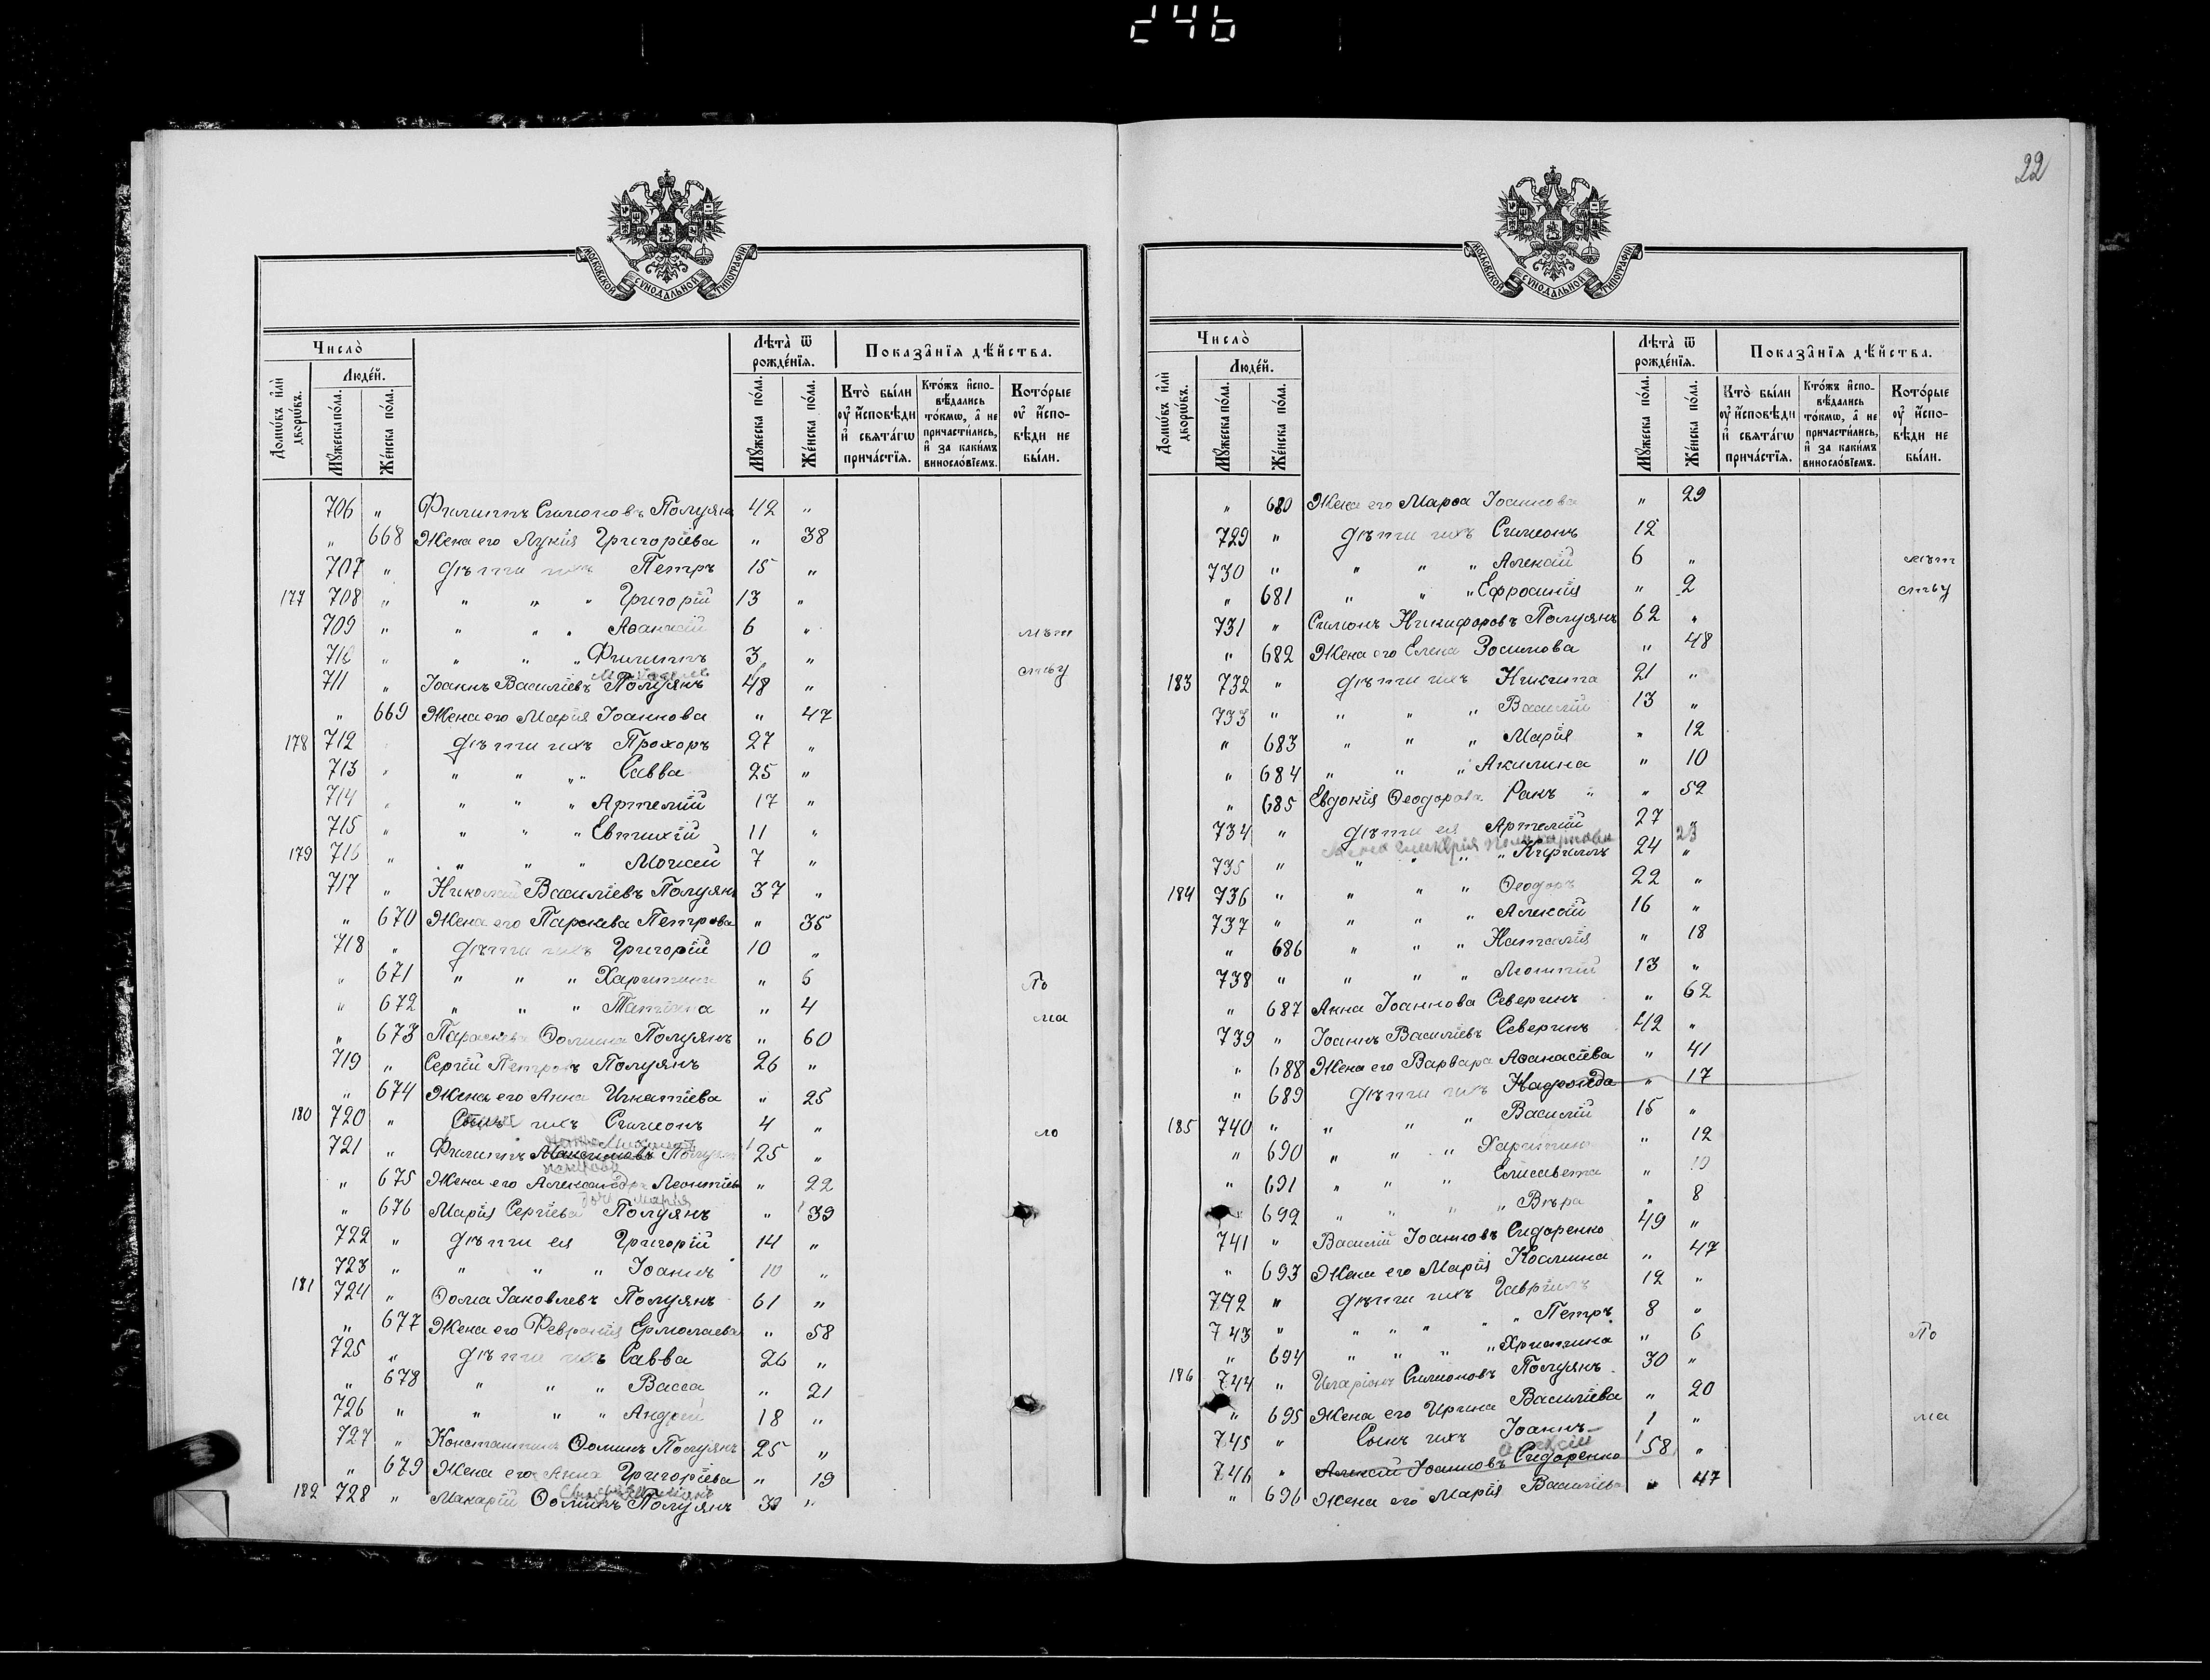 246
22
МОСКОВСКОЙ СѴНОДАЛЬНОЙ ТИПОГРАФІИ
Число̀
Люде́й.
Домѡ́въ и҆лѝ дворѡ́въ.
Мꙋ́жеска по́ла.
Же́нска по́ла.
Лѣта̀ ѿ рожде́нїѧ.
Мꙋ́жеска по́ла.
Же́нска по́ла.
Показа̑нїѧ дѣ́йства.
Кто̀ бы́ли оу҆ и҆сповѣди и҆ свѧта́гѡ прича́стїѧ.
Кто́жъ и҆спо-вѣ́дались то́кмѡ, а҆ не причасти́лись, и҆ за каки́мъ винословїемъ.
Кото́рые оу҆ и҆спо-вѣди не бы́ли.
706 „ Филиппъ Симоновъ Полуянъ 42 „
„ 668 Жена его Лукія Григоріева „ 38
707 „ дѣти ихъ Петръ 15 „
177 708 „ „ „ „ Григорій 13 „
709 „ „ „ „ Аѳанасій 6 „ лѣт
710 „ „ „ „ Филиппъ 3 „
711 „ Іоаннъ Василіевъ Полуянъ 48 „ ству
„ 669 Жена его Марія Іоаннова „ 47
178 712 дѣти ихъ Прохоръ 27 „
713 „ „ „ „ Савва 25 „
714 „ „ „ „ Артемій 17 „
715 „ „ „ „ Евтихій 11 „
179 716 „ „ „ „ Мочсей 7 „
717 „ Николай Василіевъ Полуянъ 37 „
„ 670 Жена его Параскева Петрова „ 35
718 „ дѣти ихъ Григорій 10 „
„ 671 „ „ „ Харитина „ 6 По
„ 672 „ „ „ Татіана „ 4 ма
„ 673 Параскева Ѳомина Полуянъ „ 60
719 „ Сергій Петровъ Полуянъ 26 „
„ 674 Жена его Анна Игнатіева „ 25
180 720 „ Сынъ ихъ Симеонъ 4 „ ло
721 „ Филиппъ Максимовъ Полуянъ 25 „
„ 675 Жена его Александра Леонтіева „ 22
дочь Марія
„ 676 Марія Сергіева Полуянъ „ 39
722 „ дѣти ея Григорій 14 „
723 „ „ „ „ Іоаннъ 10 „
181 724 „ Ѳома Іаковлевъ Полуянъ 61 „
„ 677 Жена его Февронія Ермолаева „ 58
725 „ дѣти ихъ Савва 26 „
„ 678 „ „ „ Васса „ 21
726 „ „ „ „ Андрей 18 „
727 „ Константинъ Ѳоминъ Полуянъ 25 „
„ 679 Жена его Анна Григоріева „ 19
182 728 „ Макарій Ѳоминъ Полуянъ 39 „
МОСКОВСКОЙ СѴНОДАЛЬНОЙ ТИПОГРАФІИ
Число̀
Люде́й.
Домѡ́въ и҆лѝ дворѡ́въ.
Мꙋ́жеска по́ла.
Же́нска по́ла.
Лѣта̀ ѿ рожде́нїѧ.
Мꙋ́жеска по́ла.
Же́нска по́ла.
Показа̑нїѧ дѣ́йства.
Кто̀ бы́ли оу҆ и҆сповѣди и҆ свѧта́гѡ прича́стїѧ.
Кто́жъ и҆спо-вѣ́дались то́кмѡ, а҆ не причасти́лись, и҆ за каки́мъ винословїемъ.
Кото́рые оу҆ и҆спо-вѣди не бы́ли.
„ 680 Жена его Марѳа Іоаннова „ 29
729 „ дѣти ихъ Симеонъ 12
730 „ „ „ „ Алексій 6 „ лѣт
„ 681 „ „ „ Ефросинія „ 2 ству
731 „ Симонъ Никифоровъ Полуянъ 62 „
„ 682 Жена его Елена Зосимова „ 48
183 732 „ дѣти ихъ Никита 21 „
733 „ „ „ „ Василій 13 „
„ 683 „ „ „ Марія „ 12
„ 684 „ „ „ Акилина „ 10
„ 685 Евдокія Ѳеодорова Ракъ „ „ 52
734 „ дѣти ея Артемій 27 „
23
735 „ „ „ „ Кириллъ 24 „
184 736 „ „ „ „ Ѳеодоръ 22 „
737 „ „ „ „ Алексій 16 „
„ 686 „ „ „ Наталія „ 18
738 „ „ „ „ Леонтій 13 „
„ 687 Анна Іоаннова Северинъ „ 62
739 „ Іоаннъ Василіевъ Северинъ 42 „
„ 688 Жена его Варвара Аѳанасіева „ 41
„ 689 дѣти ихъ Надежда „ 17
185 740 „ „ „ „ Василій 15 „
„ 690 „ „ „ Харитина „ 12
„ 691 „ „ „ Елисавета „ 10
„ 692 „ „ „ Вѣра „ 8
741 „ Василій Іоанновъ Сидоренко 49 „
„ 693 Жена его Марія Косьмина „ 47
742 „ дѣти ихъ Гавріилъ 12 „
743 „ „ „ „ Петръ 8 „
„ 694 „ „ „ Христина „ 6 По
186 744 „ Иларіонъ Симоновъ Полуянъ 30 „
„ 695 Жена его Ирина Василіева „ 20 ма
745 „ Сынъ ихъ Іоаннъ 1 „
Алексій
746 „ Алексій Іоанновъ Сидоренко 58 „
„ 696 Жена его Марія Василіева „ 47